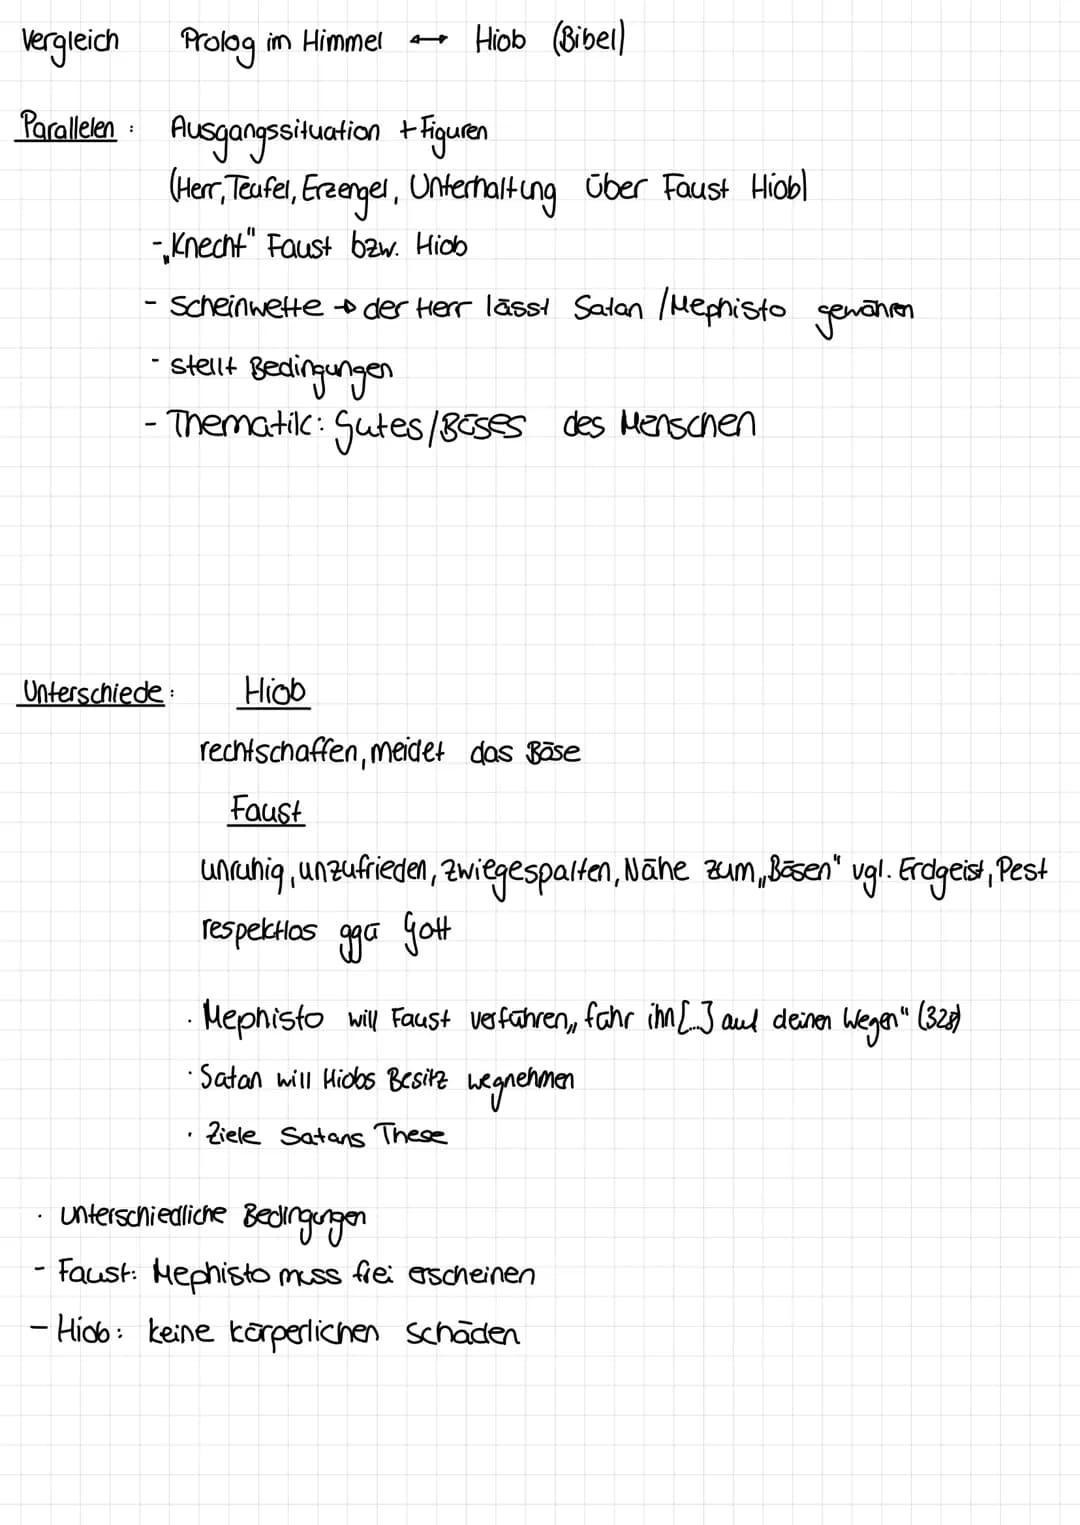 Vergleich Prolog im Himmel ↔ Hiob (Bibel)
Parallelen: Ausgangssituation + Figuren
(Herr, Teufel, Erzengel, Unterhaltung über Faust Hiob)
- „Knecht" Faust bzw. Hiob
- Scheinwette → der Herr lässt Satan / Mephisto gewähren
- stellt Bedingungen
- Thematik: Gutes/Böses des Menschen
Unterschiede: Hiob
rechtschaffen, meidet das Böse
Faust
unruhig, unzufrieden, zwiegespalten, Nähe zum „Bösen" vgl. Erdgeist, Pest
respektlos ggü Gott
· Mephisto will Faust verführen „führ ihn [...] auf deinen Wegen" (325)
· Satan will Hiobs Besitz wegnehmen
· Ziele Satans These
· unterschiedliche Bedingungen
- Faust: Mephisto muss frei erscheinen
- Hiob: keine körperlichen Schäden